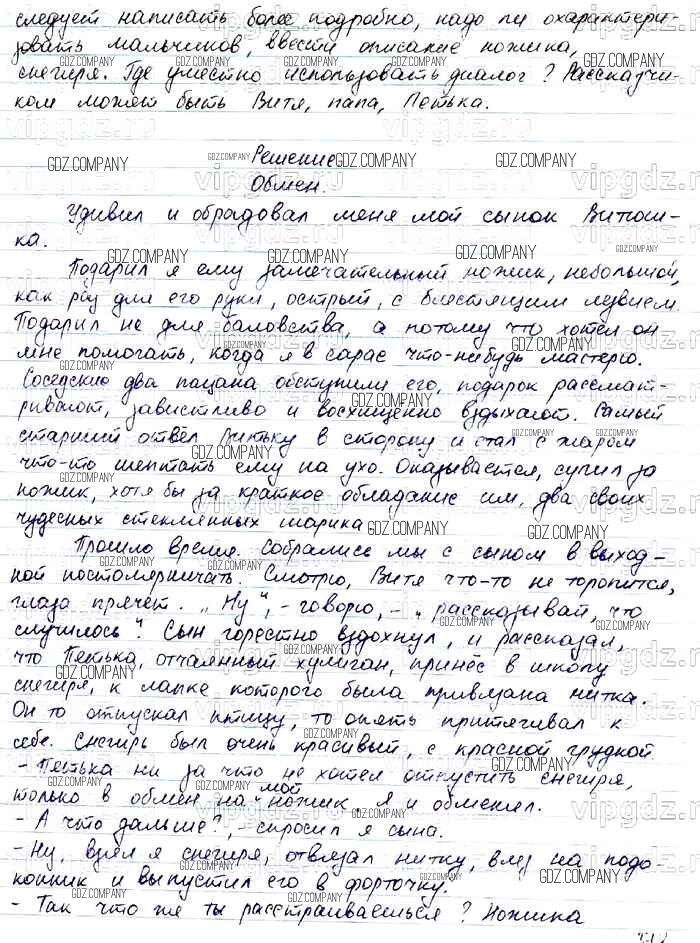 следует написать более подробно, надо ли охарактери-
зовать мальчиков, ввести описание ножика,
снегиря. Где уместно использовать диалог? Рассказчи-
ком может быть Витя, папа, Петька.
Решение
Обмен.
Удивил и обрадовал меня мой сынок Витюш-
ка.
Подарил я ему замечательный ножик, небольшой,
как раз для его руки, острый, с блестящим лезвием.
Подарил не для баловства, а потому что хотел он
мне помогать, когда я в сарае что-нибудь мастерю.
Соседские два пацана обступили его, подарок рассмат-
ривают, завистливо и восхищённо вздыхают. Самый
старший отвёл Витьку в сторону и стал с жаром
что-то шептать ему на ухо. Оказывается, сулил за
ножик, хотя бы за краткое обладание им, два своих
чудесных стеклянных шарика
Прошло время. Собрались мы с сыном в выход-
ной постолярничать. Смотрю, Витя что-то не торопится,
глаза прячет. „Ну", - говорю, - „рассказывай, что
случилось". Сын горестно вздохнул, и рассказал,
что Петька, отчаянный хулиган, принёс в школу
снегиря, к лапке которого была привязана нитка.
Он то отпускал птицу, то опять притягивал к
себе. Снегирь был очень красивый, с красной грудкой
- Петька ни за что не хотел отпустить снегиря,
только в обмен на мой ножик. Я и обменял.
- А что дальше?, - спросил я сына.
- Ну, взял я снегиря, отвязал нитку, влез на подо-
конник и выпустил его в форточку.
- Так что же ты расстраиваешься? Ножика